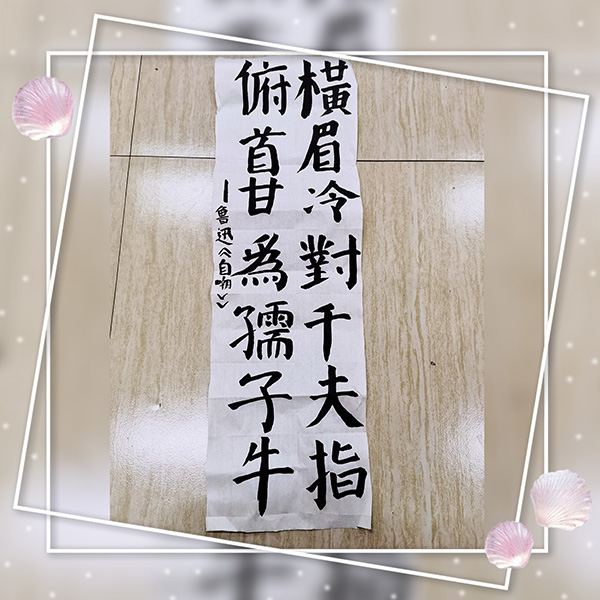 橫眉冷對千夫指
俯首甘爲孺子牛
—魯迅《自嘲》